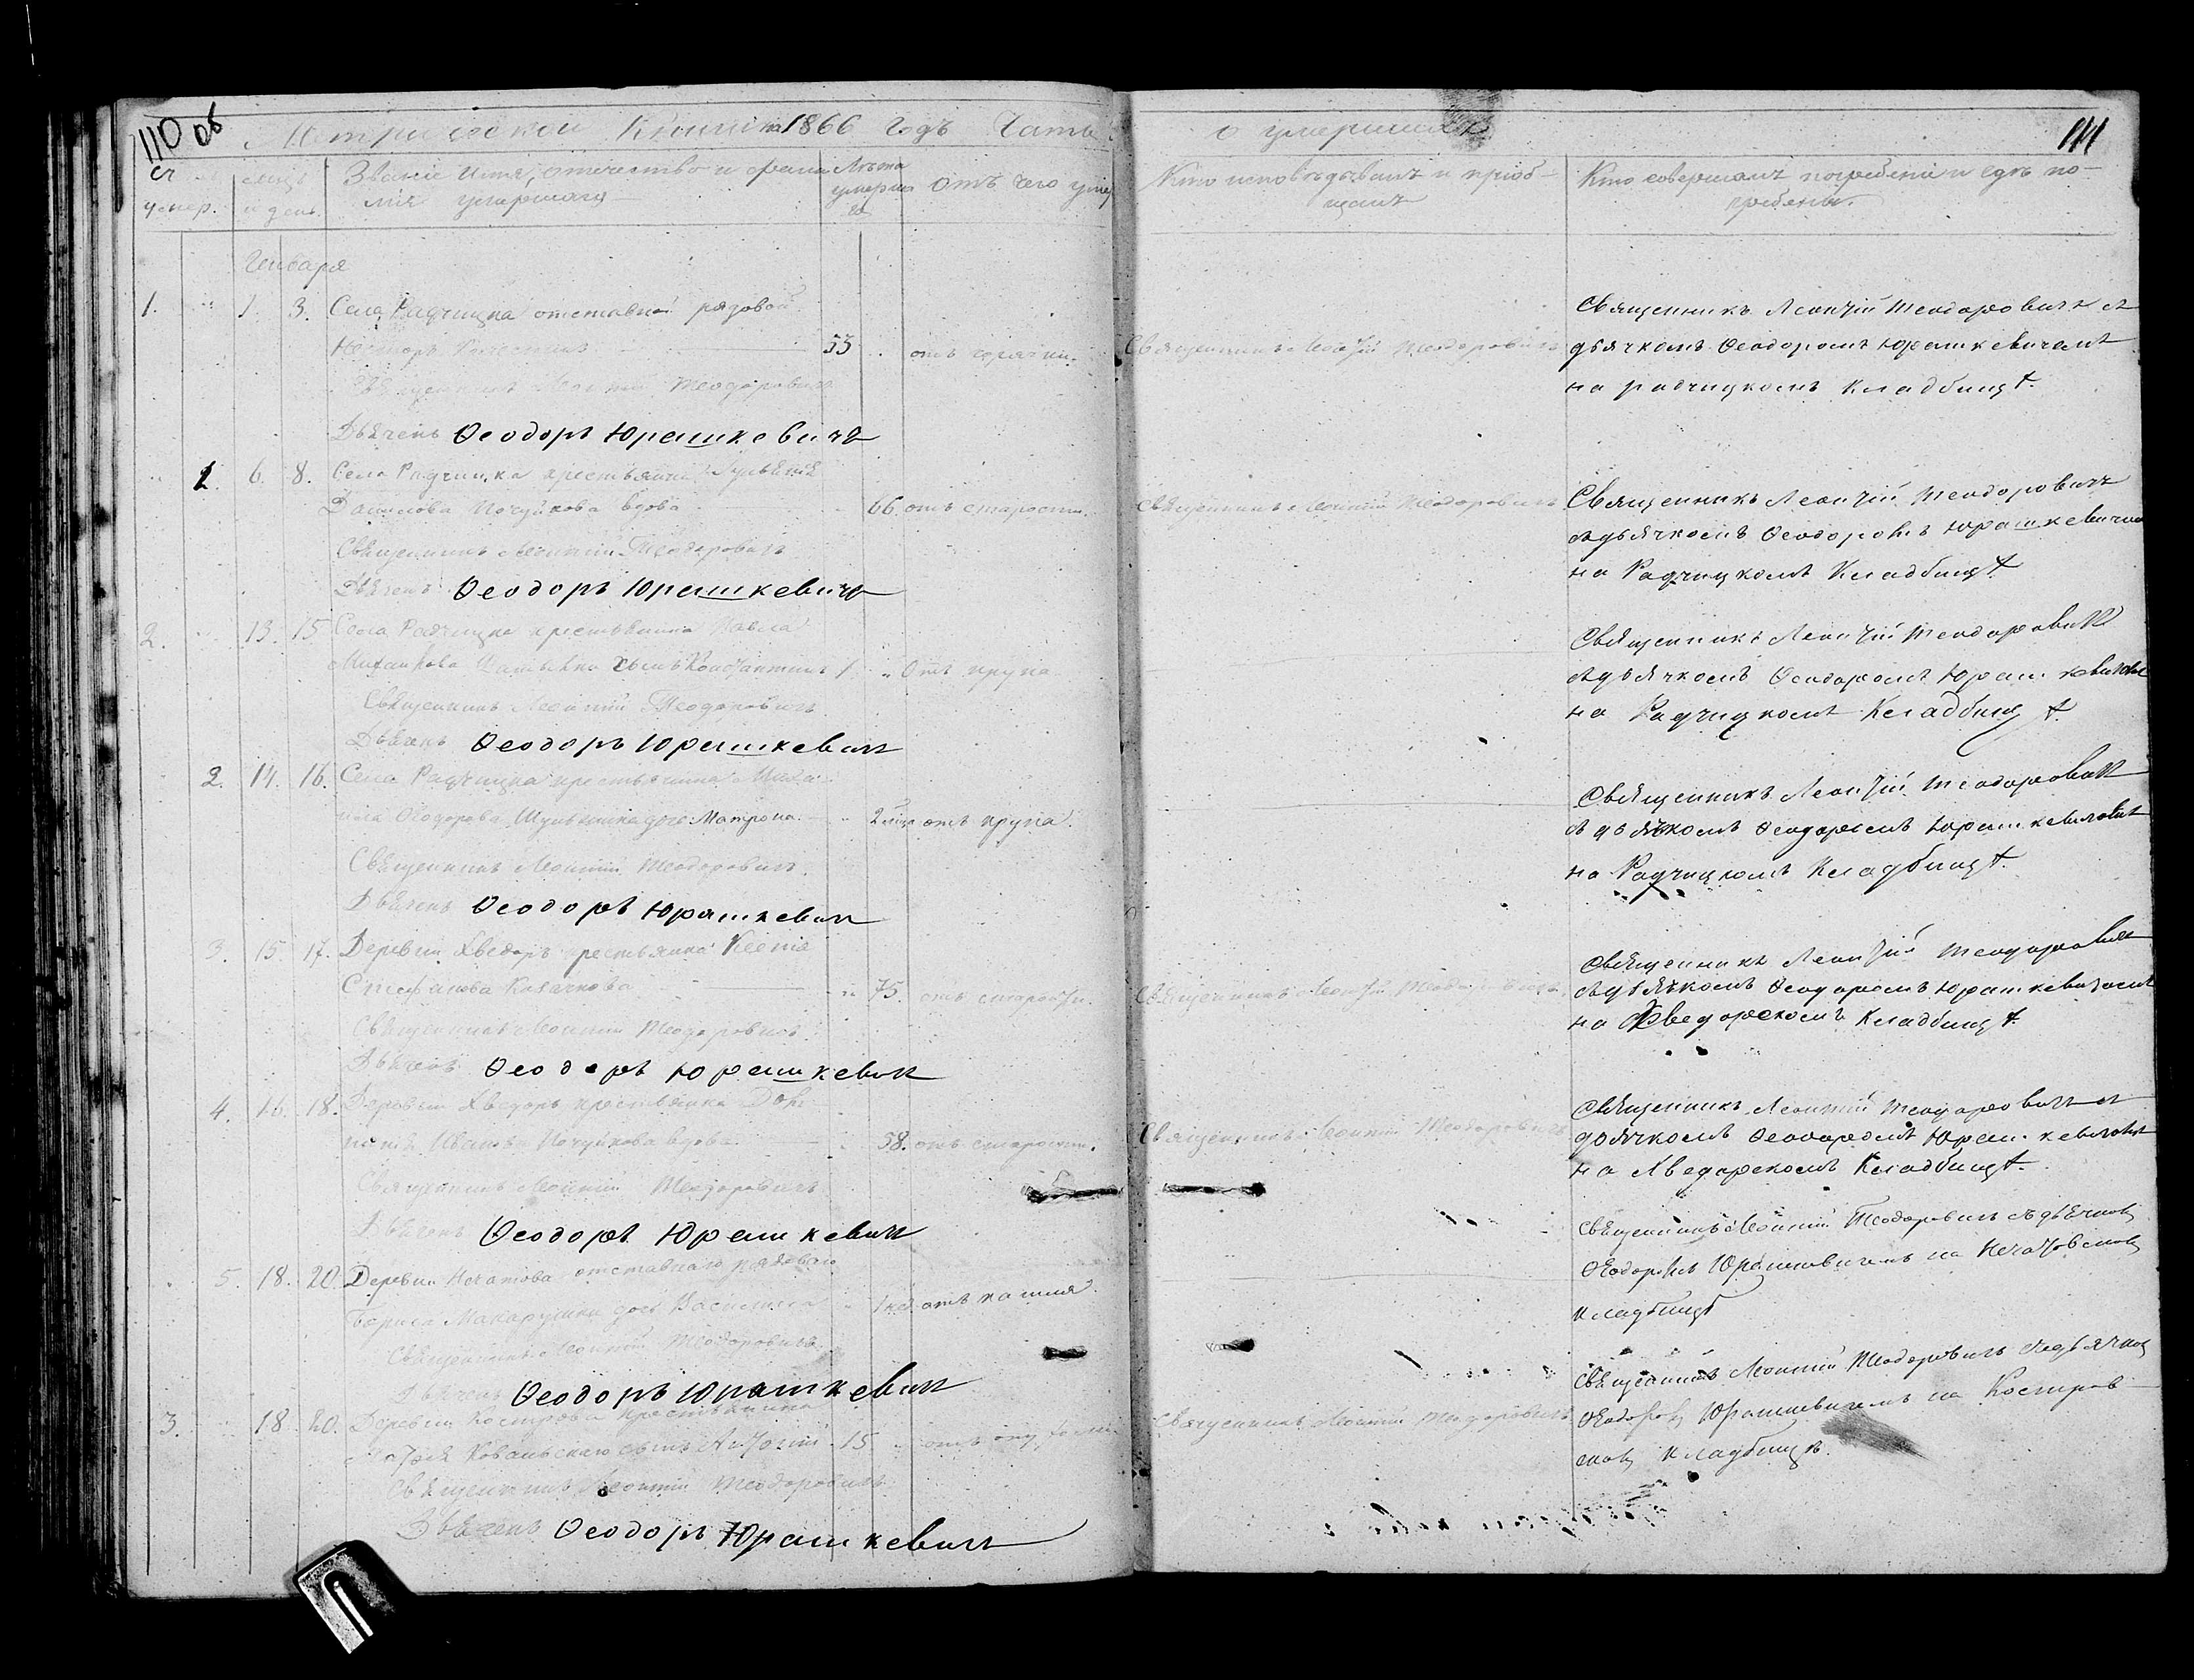 110 об
Метрической Книги на 1866 годъ Часть
о умершихъ
111
Званіе Имя, отечество и фами
лія умершаго
Лѣта
умерша
го
отъ чего умер
Кто исповѣдывалъ и пріоб-
щалъ
Кто совершалъ погребеніе и гдѣ по-
гребены.
умер.
и день
Генваря
1. 1. 3. Села Радчицка отставной рядовой
Несторъ 53 отъ горячки.
Священникъ Леонтій Теодоровичъ
Дьячекъ Ѳеодоръ Юрашкевичъ
Священникъ Леонтій Теодоровичъ
Священникъ Леонтій Теодоровичъ съ
дьячкомъ Ѳеодоромъ Юрашкевичемъ
на радчицкомъ Кладбищѣ.
1. 6. 8. Села Радчицка крестьянка
Данилова вдова 66. отъ старости.
Священникъ Леонтій Теодоровичъ
Дьячекъ Ѳеодоръ Юрашкевичъ
Священникъ Леонтій Теодоровичъ
Священникъ Леонтій Теодоровичъ
съ дьячкомъ Ѳеодоромъ Юрашкевичемъ
на Радчицкомъ Кладбищѣ.
2. 13. 15 Села Радчицка крестьянина Павла
Михайлова сынъ Константинъ 1 Отъ крупа
Священникъ Леонтій Теодоровичъ
Дьячекъ Ѳеодоръ Юрашкевичъ
Священникъ Леонтій Теодоровичъ
съ дьячкомъ Ѳеодоромъ Юрашкевичемъ
на Радчицкомъ Кладбищѣ.
2. 14. 16. Села Радчицка крестьянина Миха-
ила Ѳеодорова дочь Матрона. 2 отъ крупа.
Священникъ Леонтій Теодоровичъ.
Дьячекъ Ѳеодоръ Юрашкевичъ
Священникъ Леонтій Теодоровичъ
съ дьячкомъ Ѳеодоромъ Юрашкевичемъ
на Радчицкомъ Кладбищѣ.
3. 15. 17. Деревни Хведоръ крестьянка Ксенія
Стефанова Казачкова 75. отъ старости.
Священникъ Леонтій Теодоровичъ
Дьячекъ Ѳеодоръ Юрашкевичъ
Священникъ Леонтій Теодоровичъ
Священникъ Леонтій Теодоровичъ
съ дьячкомъ Ѳеодоромъ Юрашкевичемъ
на Хведорскомъ Кладбищѣ.
4. 16. 18. Деревни Хведоръ крестьянка
Иванова вдова 58. отъ старости.
Священникъ Леонтій Теодоровичъ
Дьячекъ Ѳеодоръ Юрашкевичъ
Священникъ Леонтій Теодоровичъ
Священникъ Леонтій Теодоровичъ съ
дьячкомъ Ѳеодоромъ Юрашкевичемъ
на Хведорскомъ Кладбищѣ.
5. 18. 20. Деревни Нечатова отставнаго рядоваго
Бориса Макарушки дочь Василиса 1 нед отъ кашля.
Священникъ Леонтій Теодоровичъ
Дьячекъ Ѳеодоръ Юрашкевичъ
Священникъ Леонтій Теодоровичъ съ дьячкомъ
Ѳеодоромъ Юрашкевичемъ на Нечатовскомъ
кладбищѣ
3. 18 20. Деревни крестьянина
Ковальскаго сынъ Антоній 15
Священникъ Леонтій Теодоровичъ
Дьячекъ Ѳеодоръ Юрашкевичъ
Священникъ Леонтій Теодоровичъ
Священникъ Леонтій Теодоровичъ съ дьячкомъ
Ѳеодоромъ Юрашкевичемъ на Костыров-
скомъ кладбищѣ.